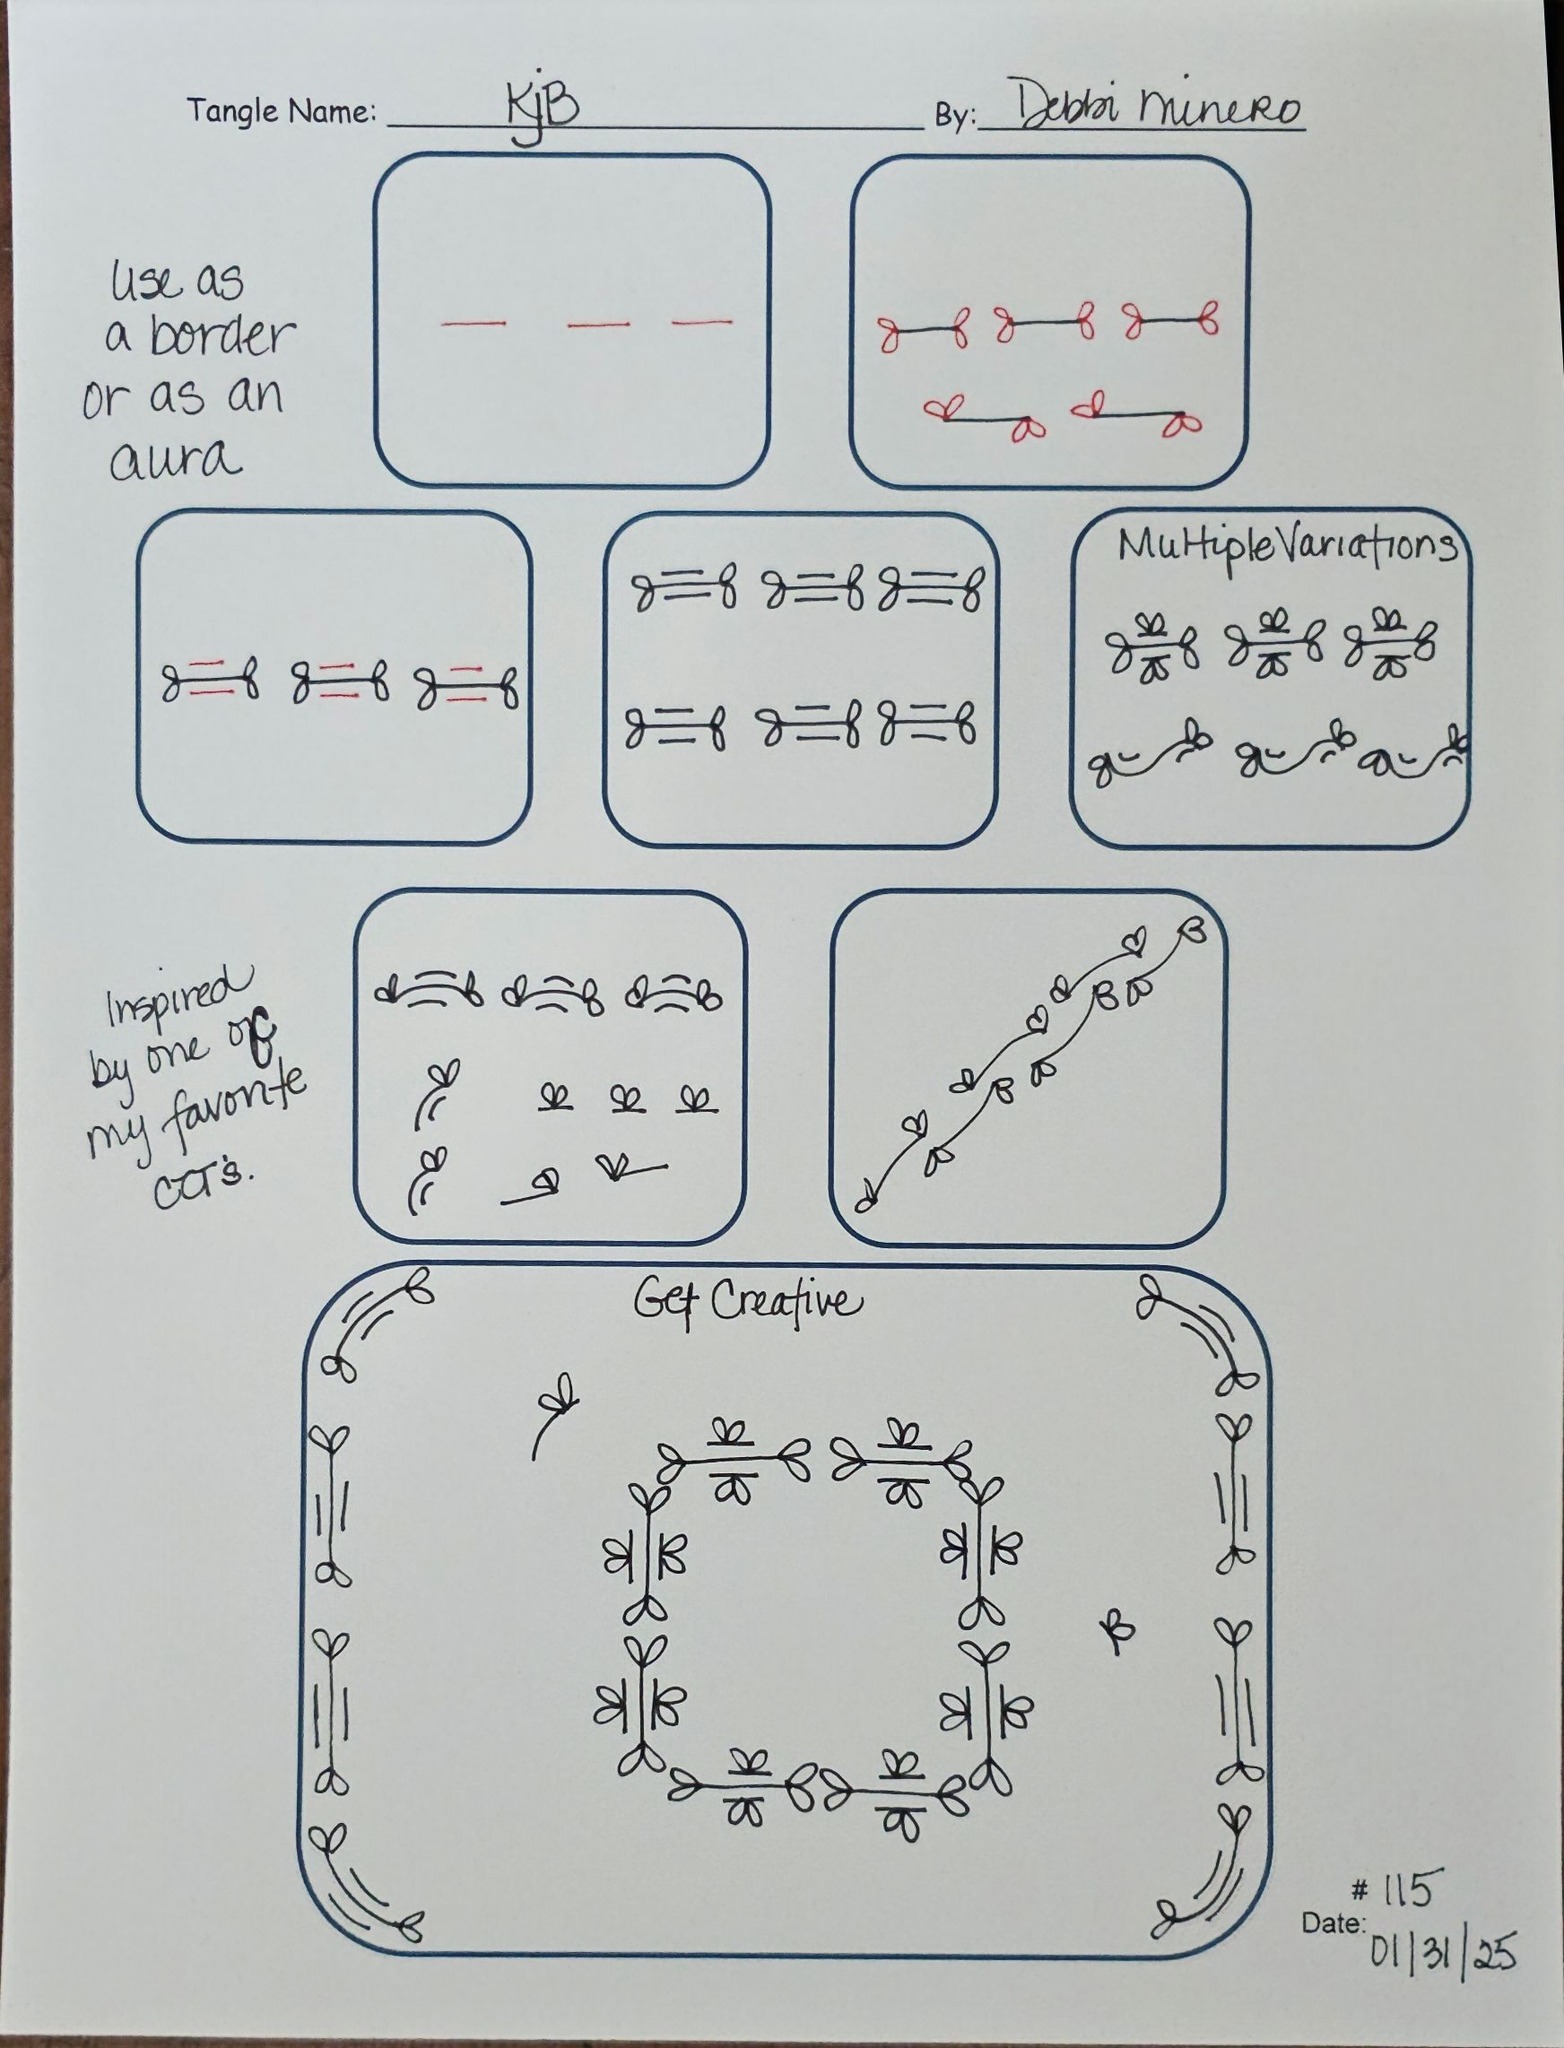 Tangle Name: KjB By: Debbi Minero
Use as
a border
or as an
aura
Multiple Variations
Inspired
by one of
my favorite
CZT's.
Get Creative
# 115
Date: 01/31/25